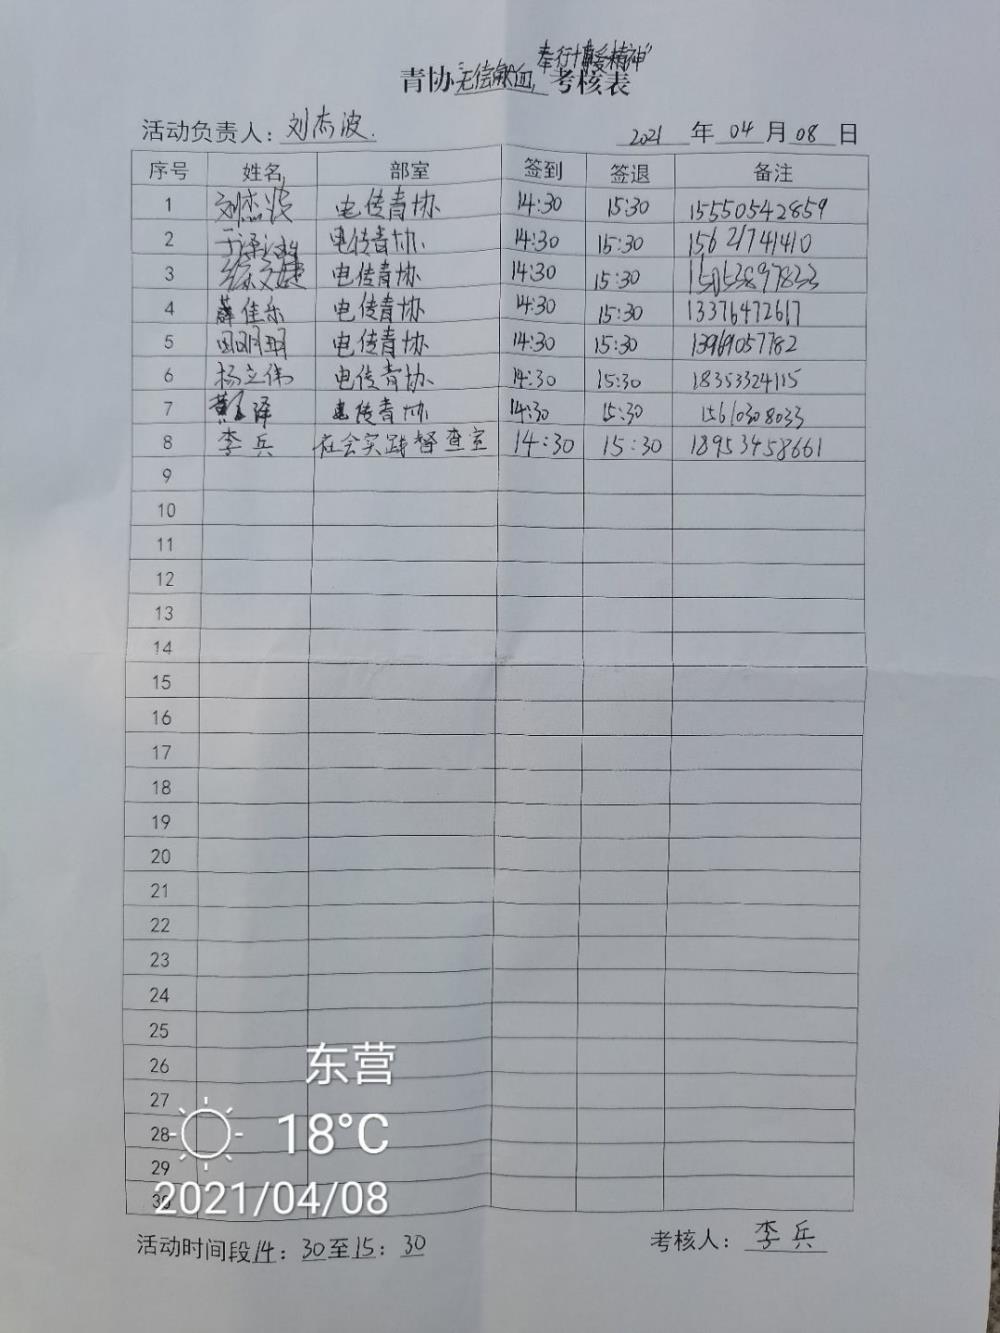 奉行博爱精神"
青协"无偿献血, 考核表
活动负责人: 刘杰波.
2021 年 04 月 08 日
序号 姓名 部室 签到 签退 备注
1 刘杰波 电传青协 14:30 15:30 15550542859
2 电传青协 14:30 15:30 15621741410
3 徐文婕 电传青协 14:30 15:30 15053897833
4 薛佳乐 电传青协 14:30 15:30 13376472617
5 田明玥 电传青协 14:30 15:30 13969057782
6 杨立伟 电传青协 14:30 15:30 18353324115
7 电传青协 14:30 15:30 15610308033
8 李兵 社会实践督查室 14:30 15:30 18953458661
9
10
11
12
13
14
15
16
17
18
19
20
21
22
23
24
25
26
27
28
29
30
东营
18°C
2021/04/08
活动时间段14: 30至15: 30
考核人: 李兵